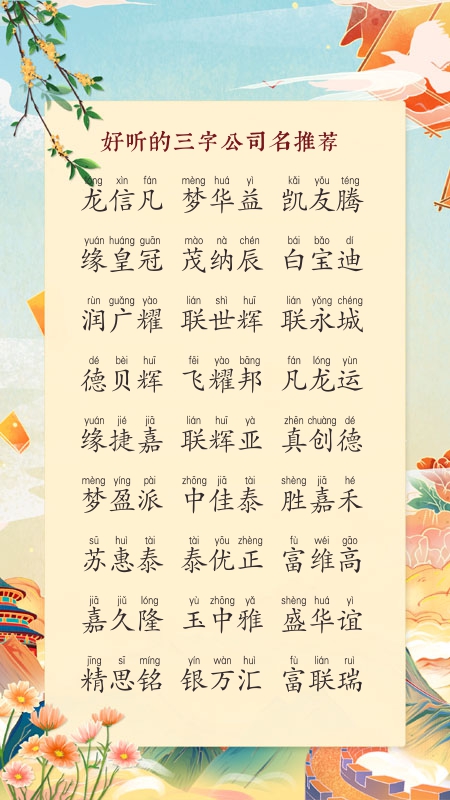 好听的三字公司名推荐
lóng xìn fán mèng huá yì kǎi yǒu téng
龙信凡 梦华益 凯友腾
yuán huáng guān mào nà chén bái bǎo dí
缘皇冠 茂纳辰 白宝迪
rùn guǎng yào lián shì huī lián yǒng chéng
润广耀 联世辉 联永城
dé bèi huī fēi yào bāng fán lóng yùn
德贝辉 飞耀邦 凡龙运
yuán jié jiā lián huī yà zhēn chuàng dé
缘捷嘉 联辉亚 真创德
mèng yíng pài zhōng jiā tài shèng jiā hé
梦盈派 中佳泰 胜嘉禾
sū huì tài tài yōu zhèng fù wéi gāo
苏惠泰 泰优正 富维高
jiā jiǔ lóng yù zhōng yǎ shèng huá yì
嘉久隆 玉中雅 盛华谊
jīng sī míng yín wàn huì fù lián ruì
精思铭 银万汇 富联瑞